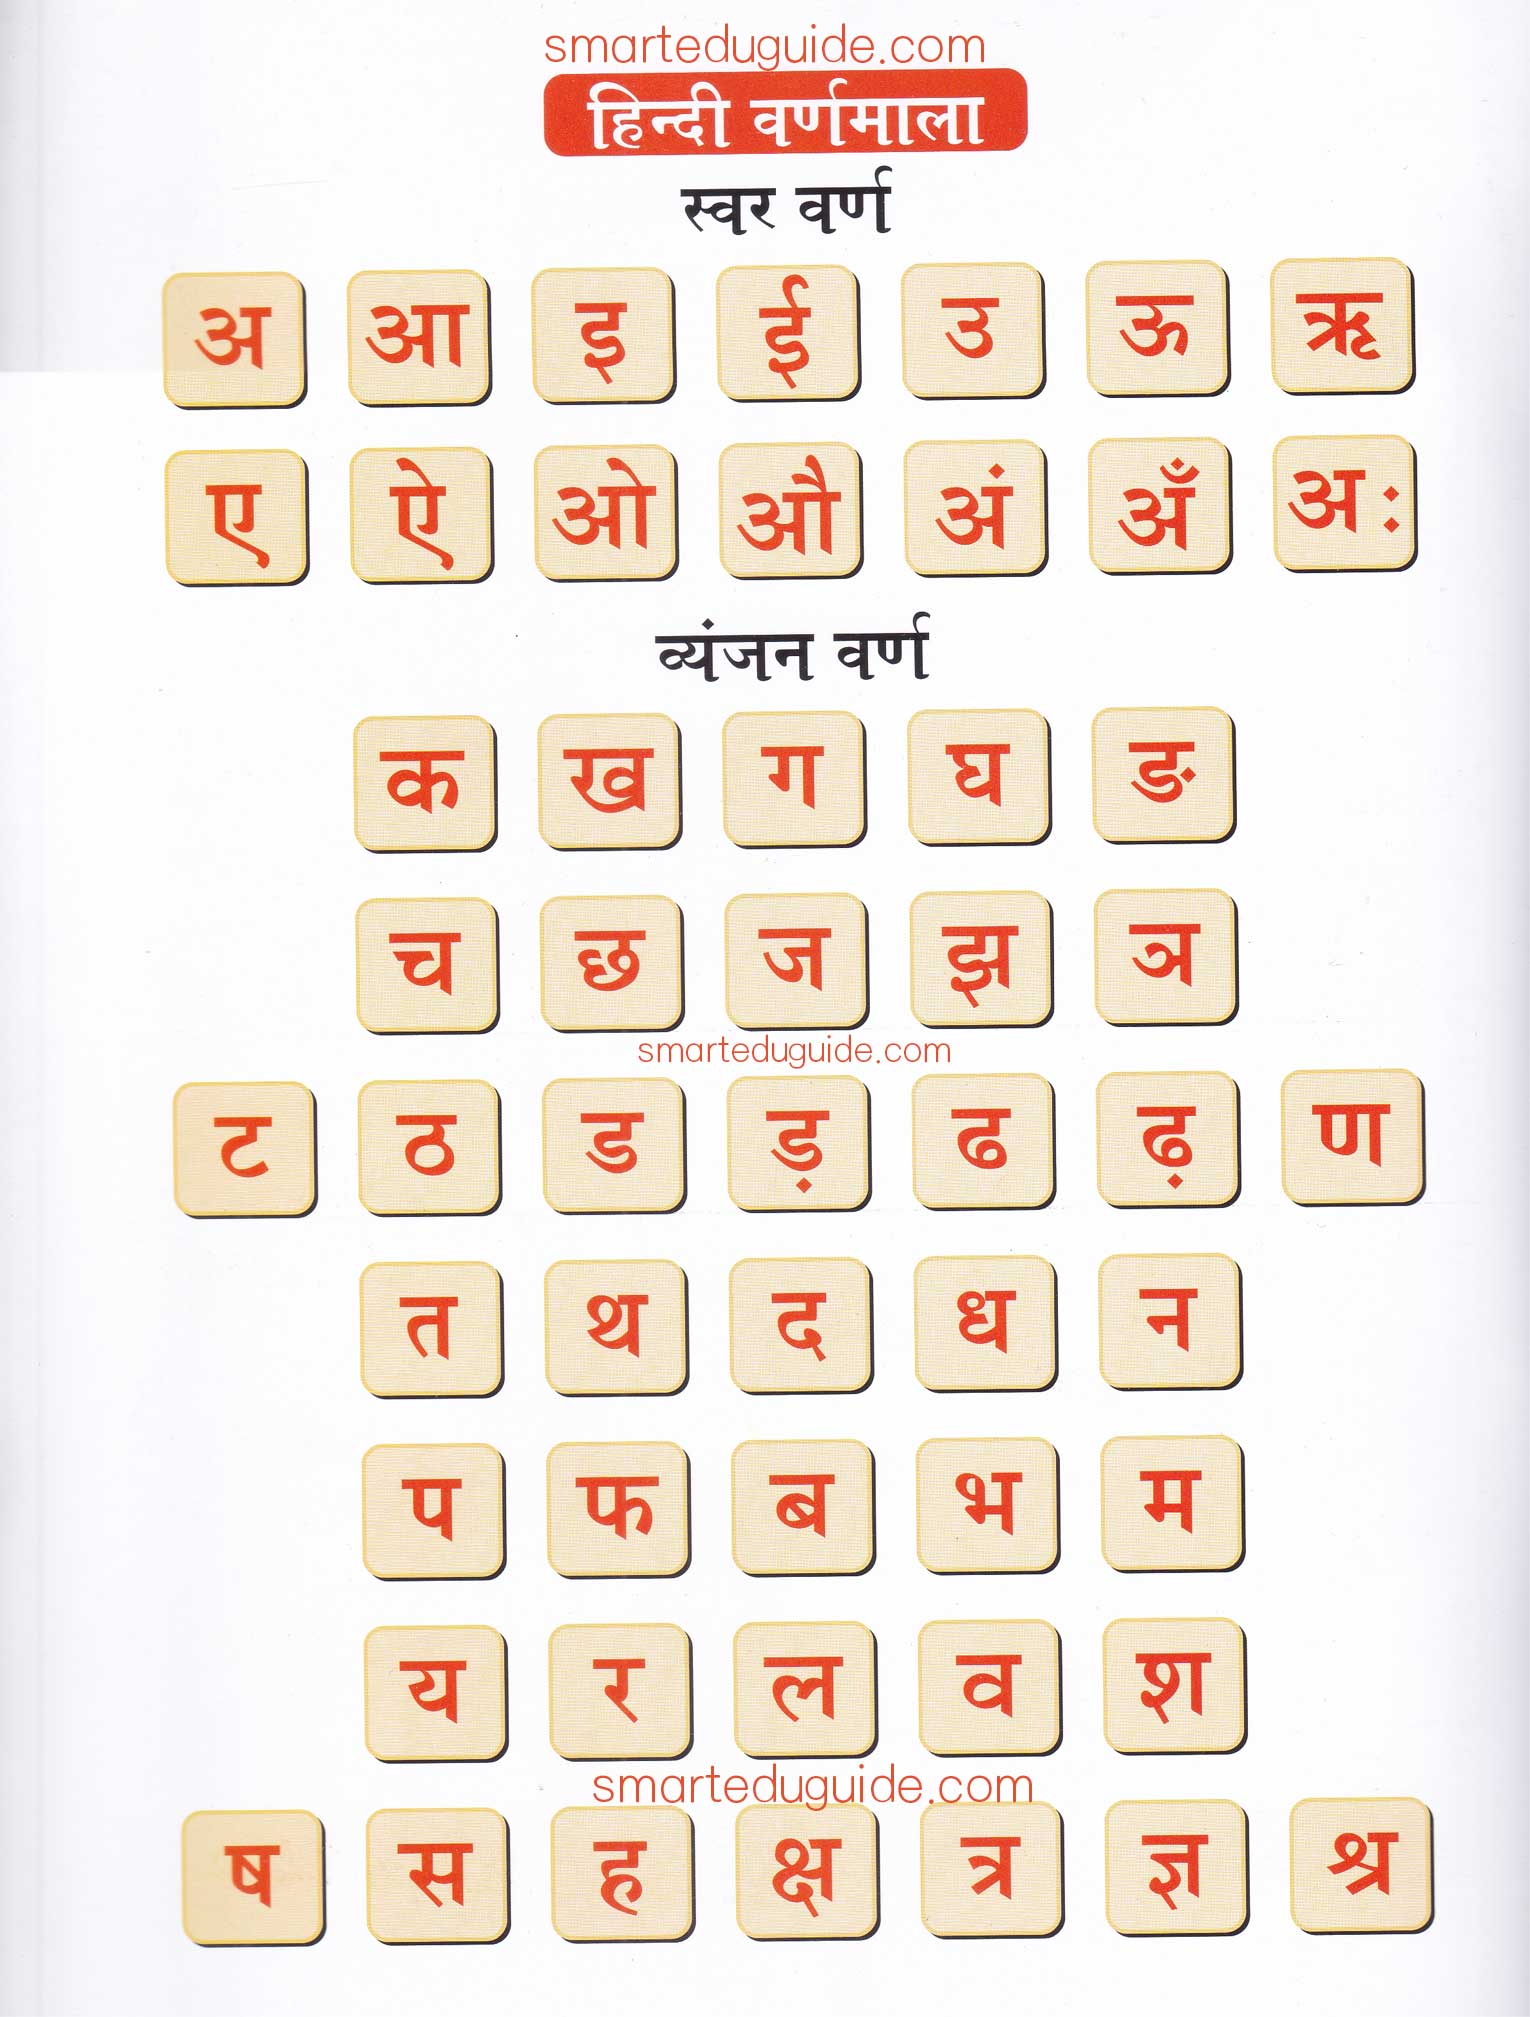 smarteduguide.com
हिन्दी वर्णमाला
स्वर वर्ण
अ आ इ ई उ ऊ ऋ
ए ऐ ओ औ अं अँ अः
व्यंजन वर्ण
क ख ग घ ङ
च छ ज झ ञ
smarteduguide.com
ट ठ ड ड़ ढ ढ़ ण
त थ द ध न
प फ ब भ म
य र ल व श
smarteduguide.com
ष स ह क्ष त्र ज्ञ श्र